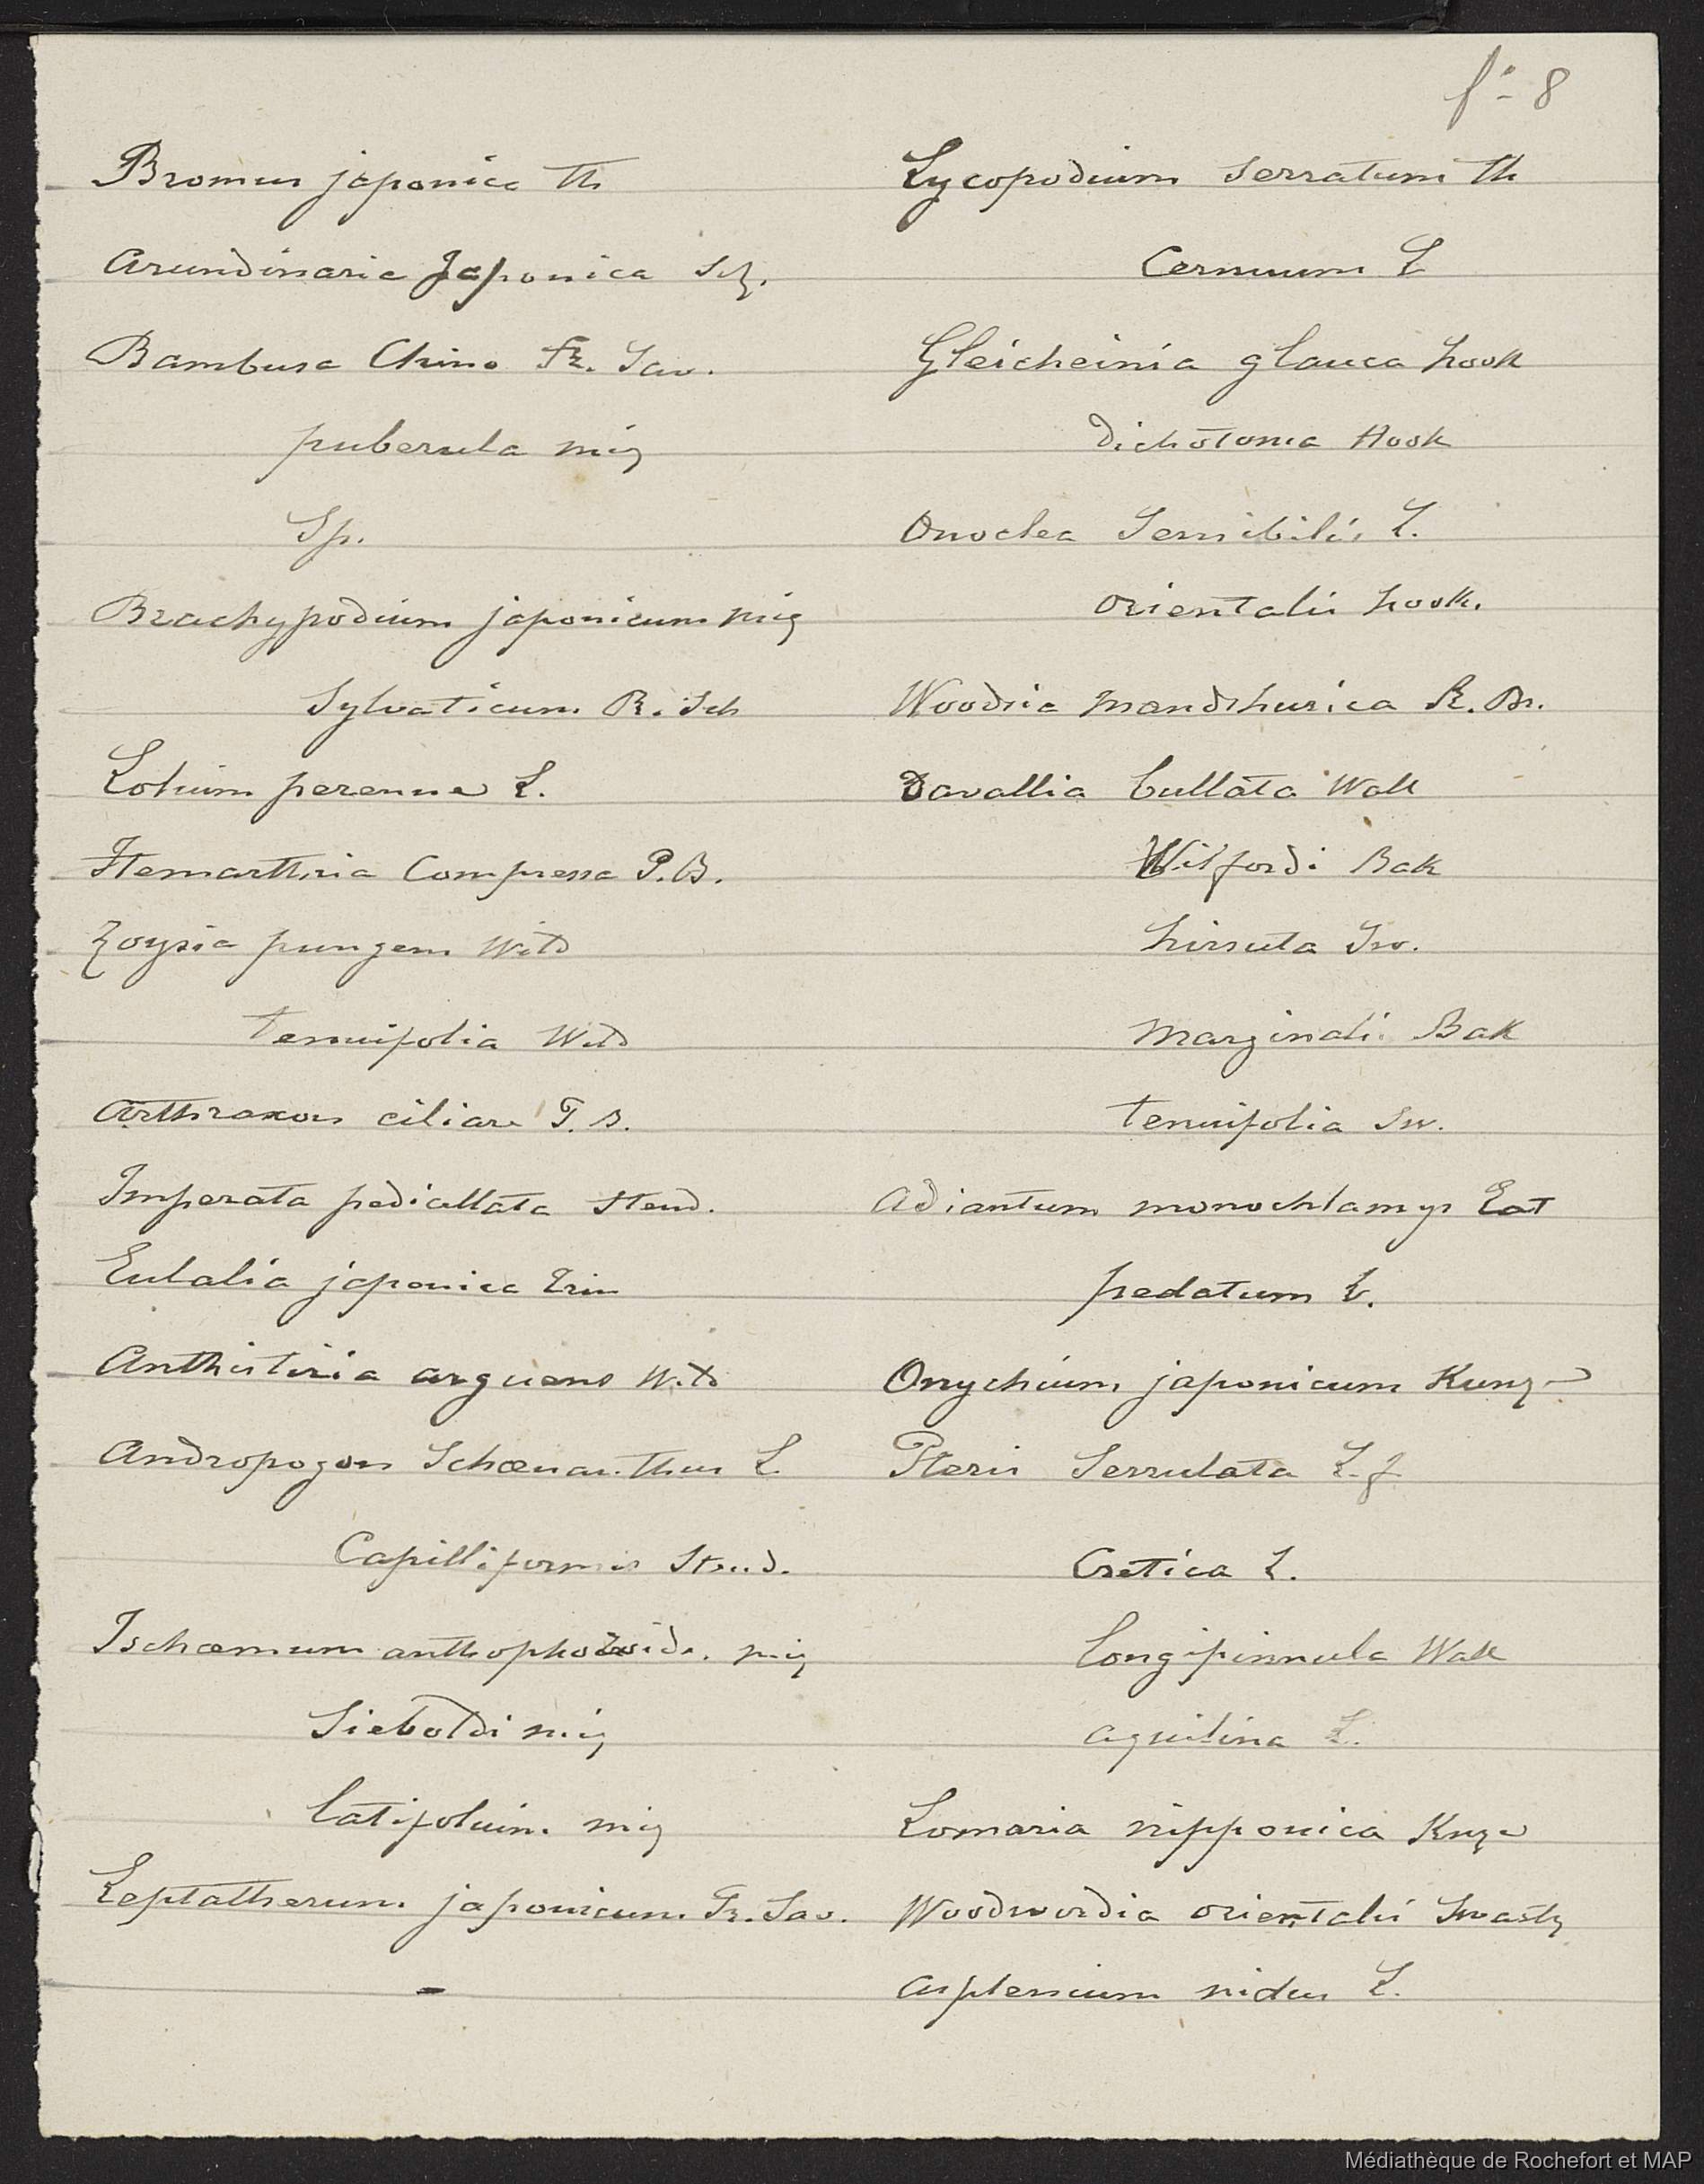 f° 8
Bromus japonica Th
Arundinaria Japonica SZ.
Bambusa Chino Fr. Sav.
puberula miq
Sp.
Brachypodium japonicum miq
Sylvaticum R. Sch
Lolium perenne L.
Hemarthria Compressa P.B.
Zoysia pungens Wild
tenuifolia Wild
Arthraxon ciliare P. B.
Imperata pedicellata Steud.
Eulalia japonica Trin
Anthistiria arguens Wild
Andropogon Schœnanthus L.
Capilliformis Steud.
Ischœmum anthephoroides miq
Sieboldi miq
latifolium miq
Leptatherum japonicum Fr. Sav.
-
Lycopodium serratum Th
Cernuum L
Gleicheinia glauca hook
dichotoma Hook
Onoclea Sensibilis L.
orientalis hook.
Woodsia mandshurica R. Br.
Davallia bullata Wall
Wilfordi Bak
hirsuta Sw.
marginalis Bak
tenuifolia Sw.
Adiantum monochlamys Eat
pedatum L.
Onychium japonicum Kunze
Pteris Serrulata L.f.
Cretica L.
longipinnula Wall
aquilina L.
Lomaria nipponica Knze
Woodwordia orientalis
Asplenium nidus L.
Médiathèque de Rochefort et MAP